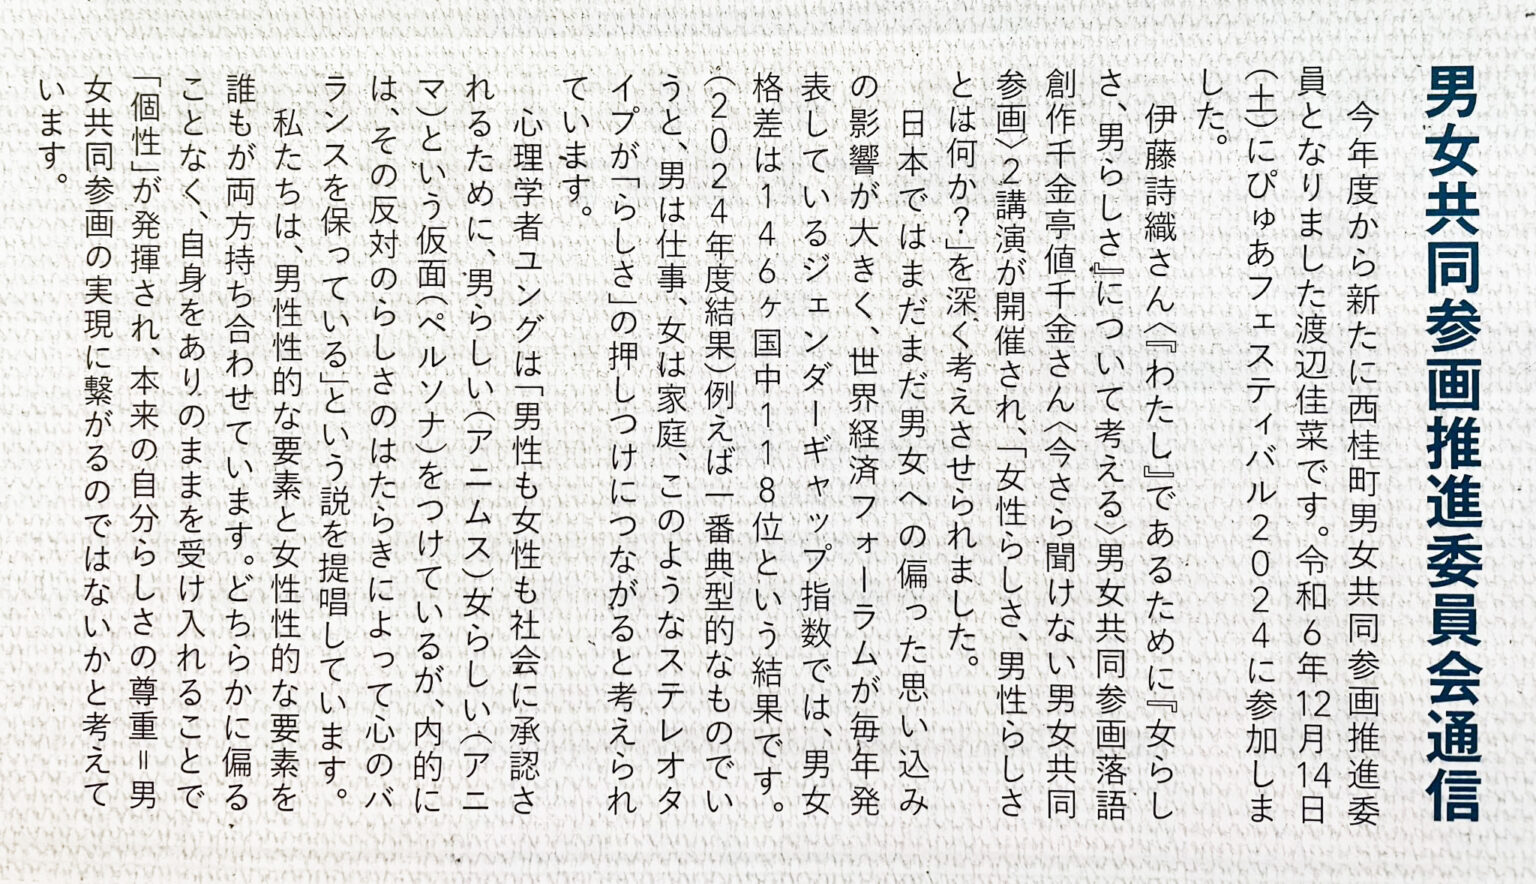 男女共同参画推進委員会通信
今年度から新たに西桂町男女共同参画推進委
員となりました渡辺佳菜です。令和6年12月14日
(土)にぴゅあフェスティバル2024に参加しま
した。
伊藤詩織さん〈『わたし』であるために『女らし
さ、男らしさ』について考える〉男女共同参画落語
創作千金亭値千金さん〈今さら聞けない男女共同
参画〉2講演が開催され、「女性らしさ、男性らしさ
とは何か?」を深く考えさせられました。
日本ではまだまだ男女への偏った思い込み
の影響が大きく、世界経済フォーラムが毎年発
表しているジェンダーギャップ指数では、男女
格差は146ヶ国中118位という結果です。
(2024年度結果)例えば一番典型的なものでい
うと、男は仕事、女は家庭、このようなステレオタ
イプが「らしさ」の押しつけにつながると考えられ
ています。
心理学者ユングは「男性も女性も社会に承認さ
れるために、男らしい(アニムス)女らしい(アニ
マ)という仮面(ペルソナ)をつけているが、内的に
は、その反対のらしさのはたらきによって心のバ
ランスを保っている」という説を提唱しています。
私たちは、男性性的な要素と女性性的な要素を
誰もが両方持ち合わせています。どちらかに偏る
ことなく、自身をありのままを受け入れることで
「個性」が発揮され、本来の自分らしさの尊重=男
女共同参画の実現に繋がるのではないかと考えて
います。